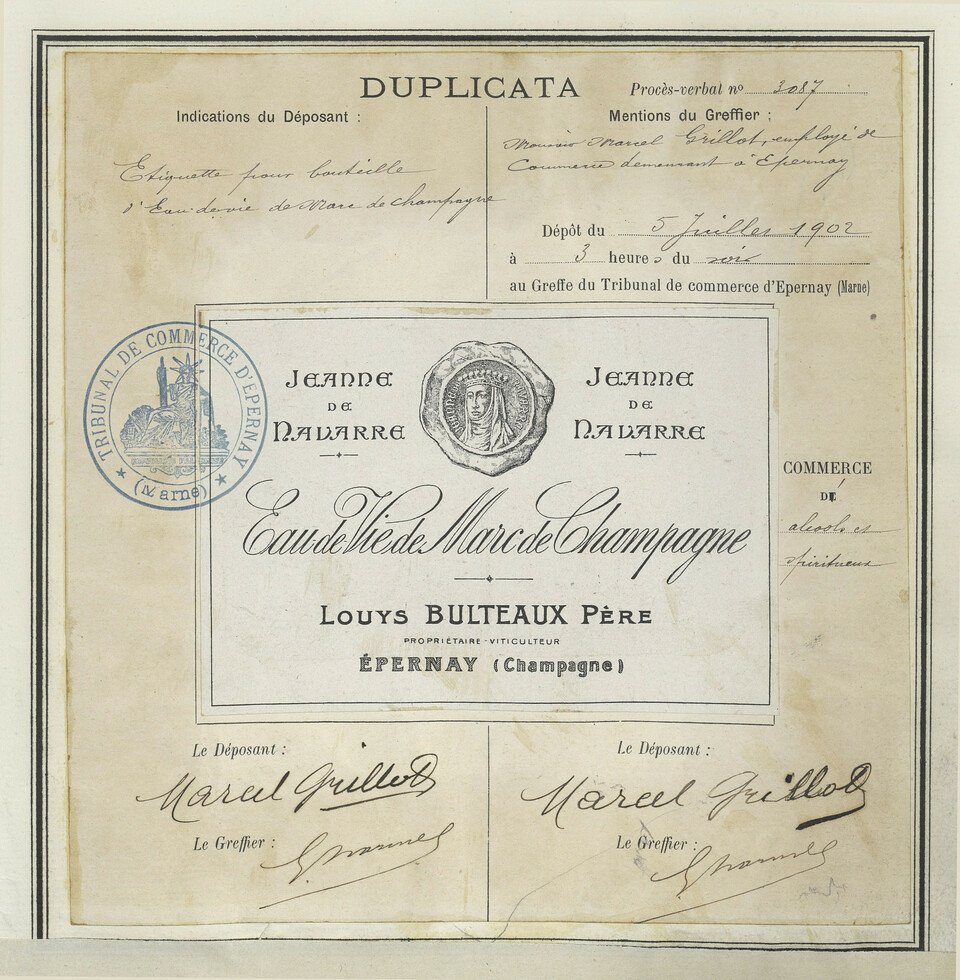 DUPLICATA
Procès-verbal nº 3087
Indications du Déposant :
Etiquette pour bouteille
d'Eau-de-vie de Marc de Champagne
Mentions du Greffier :
Monsieur Marcel Grillot, employé de
Commerce demeurant à Epernay
Dépôt du 5 Juillet 1902
à 3 heures du soir
au Greffe du Tribunal de commerce d'Epernay (Marne)
TRIBUNAL DE COMMERCE D'EPERNAY
(Marne)
JEANNE
DE
NAVARRE
JEANNE
DE
NAVARRE
Eau de Vie de Marc de Champagne
LOUYS BULTEAUX PÈRE
PROPRIÉTAIRE-VITICULTEUR
ÉPERNAY (Champagne)
COMMERCE
DE
alcools et
spiritueux
Le Déposant :
Marcel Grillot
Le Greffier :
Le Déposant :
Marcel Grillot
Le Greffier :